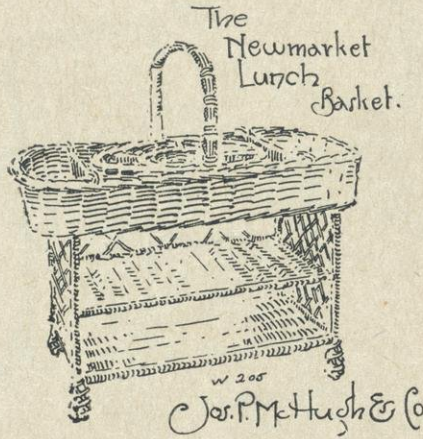 The
Newmarket
Lunch
Basket.
W 206
Jos. P. McHugh & Co